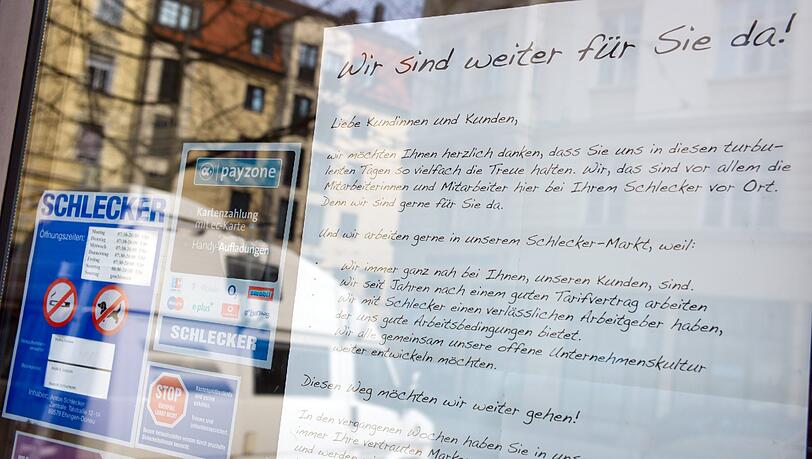 Wir sind weiter für Sie da!
Liebe Kundinnen und Kunden,
wir möchten Ihnen herzlich danken, dass Sie uns in diesen turbu-
lenten Tagen so vielfach die Treue halten. Wir, das sind vor allem die
Mitarbeiterinnen und Mitarbeiter hier bei Ihrem Schlecker vor Ort.
Denn wir sind gerne für Sie da.
Und wir arbeiten gerne in unserem Schlecker-Markt, weil:
Wir immer ganz nah bei Ihnen, unseren Kunden, sind.
Wir seit Jahren nach einem guten Tarifvertrag arbeiten
Wir mit Schlecker einen verlässlichen Arbeitgeber haben,
der uns gute Arbeitsbedingungen bietet.
Wir alle gemeinsam unsere offene Unternehmenskultur
weiter entwickeln möchten.
Diesen Weg möchten wir weiter gehen!
In den vergangenen Wochen haben Sie in uns
immer Ihre vertrauten Mark
und werden
payzone
Kartenzahlung
mit ec-Karte
Handy-Aufladungen
e-plus
SCHLECKER
SCHLECKER
Öffnungszeiten:
Montag
Dienstag
Mittwoch
Donnerstag
Freitag
Samstag
Sonntag
Inhaber: Anton Schlecker
Zentrale: Talstraße 12
89579 Ehingen-Donau
STOP